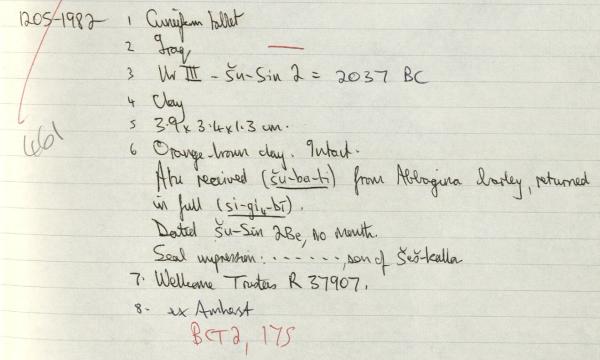 1205-1982 1 Cuneiform tablet
2 Iraq
3 Ur III - Šu-Sin 2 = 2037 BC
4 Clay
5 3.9 x 3.4 x 1.3 cm.
461
6 Orange-brown clay. Intact.
Atu received (šu-ba-ti) from Abbagina barley, returned
in full (si-gi₄-bi).
Dated Šu-Sin 2Be, no month.
Seal impression: ......., son of Šeš-kalla
7. Wellcome Trustees R 37907.
8. ex Amherst
BCT2, 175